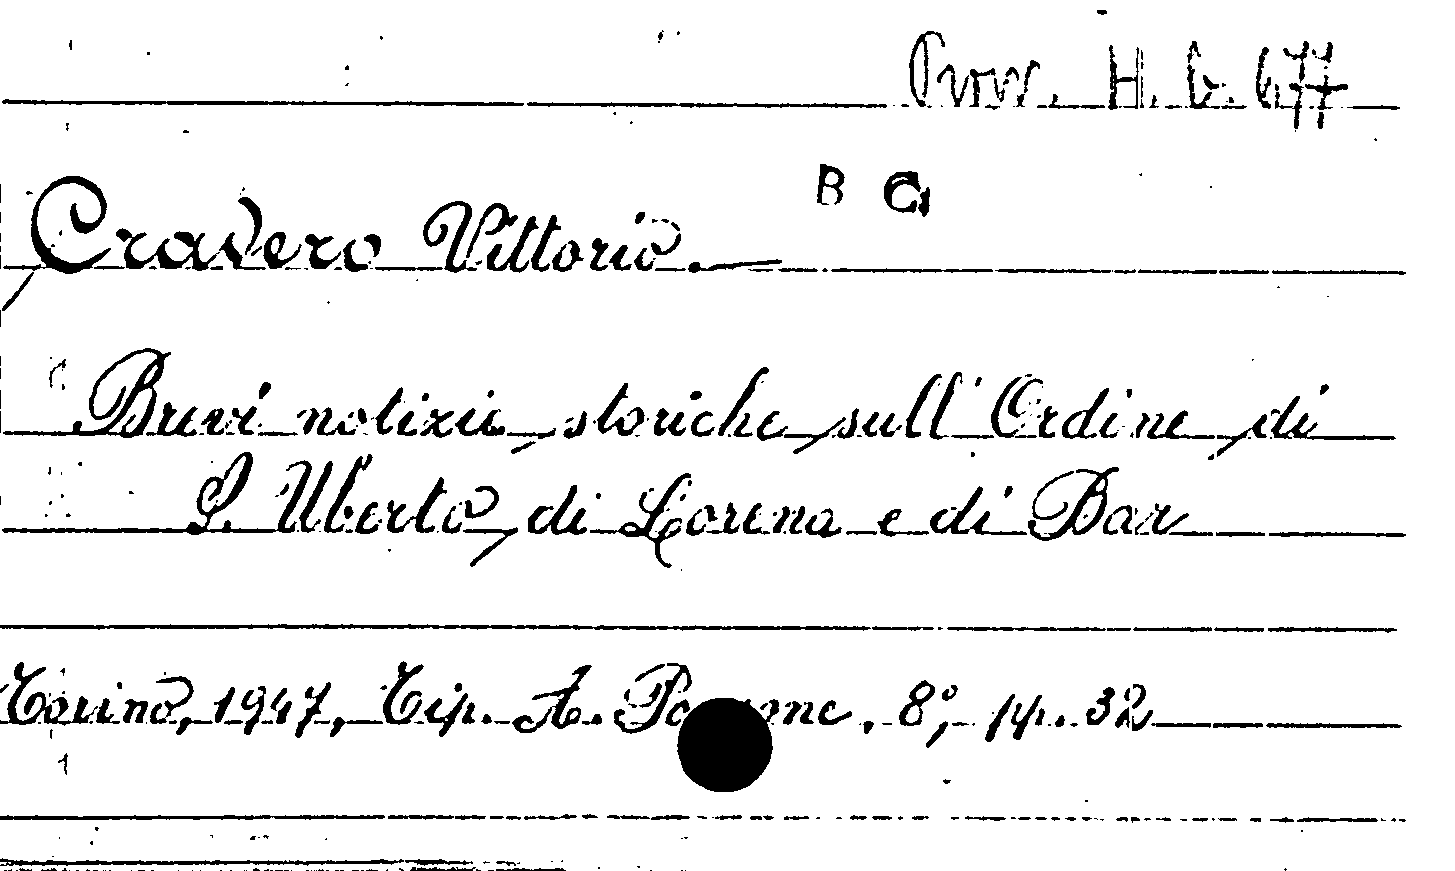 Prov. H. b. 677
B G
Cravero Vittorio. —
Brevi notizie storiche sull'Ordine di
S. Uberto di Lorena e di Bar
Torino, 1947, Tip. A. , 8°, pp. 32